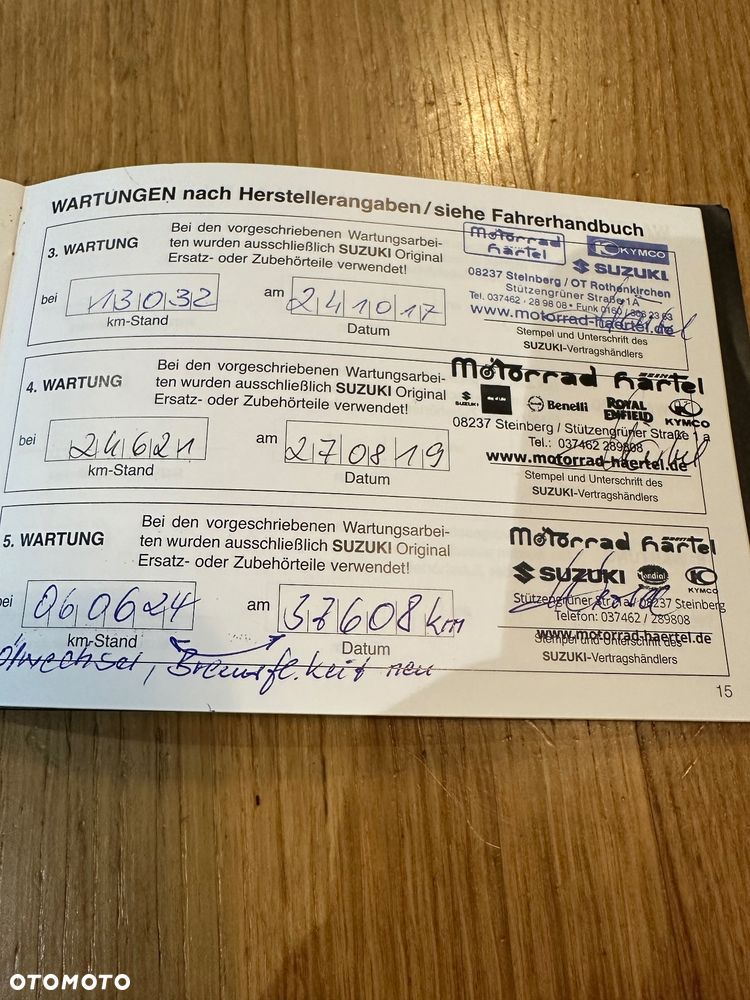 WARTUNGEN nach Herstellerangaben/siehe Fahrerhandbuch
3. WARTUNG
Bei den vorgeschriebenen Wartungsarbei-
ten wurden ausschließlich SUZUKI Original
Ersatz- oder Zubehörteile verwendet!
bei 13032 am 241017
km-Stand Datum
Motorrad
härtel
KYMCO
SUZUKI
08237 Steinberg / OT Rothenkirchen
Stützengrüner Straße 1A
Tel. 037462 - 28 98 08 • Funk 0160 / 806 23 63
www.motorrad-haertel.de
Stempel und Unterschrift des
SUZUKI-Vertragshändlers
4. WARTUNG
Bei den vorgeschriebenen Wartungsarbei-
ten wurden ausschließlich SUZUKI Original
Ersatz- oder Zubehörteile verwendet!
bei 24621 am 270819
km-Stand Datum
Motorrad härtel
SUZUKI Benelli ROYAL ENFIELD KYMCO
08237 Steinberg / Stützengrüner Straße 1a
Tel.: 037462 289808
www.motorrad-haertel.de
Stempel und Unterschrift des
SUZUKI-Vertragshändlers
5. WARTUNG
Bei den vorgeschriebenen Wartungsarbei-
ten wurden ausschließlich SUZUKI Original
Ersatz- oder Zubehörteile verwendet!
bei 060624 am 37608 km
km-Stand Datum
Ölwechsel, Bremsfl.keit neu
Motorrad härtel
SUZUKI Mondial KYMCO
Stützengrüner Str. 1a / 08237 Steinberg
Telefon: 037462 / 289808
www.motorrad-haertel.de
Stempel und Unterschrift des
SUZUKI-Vertragshändlers
15
OTOMOTO